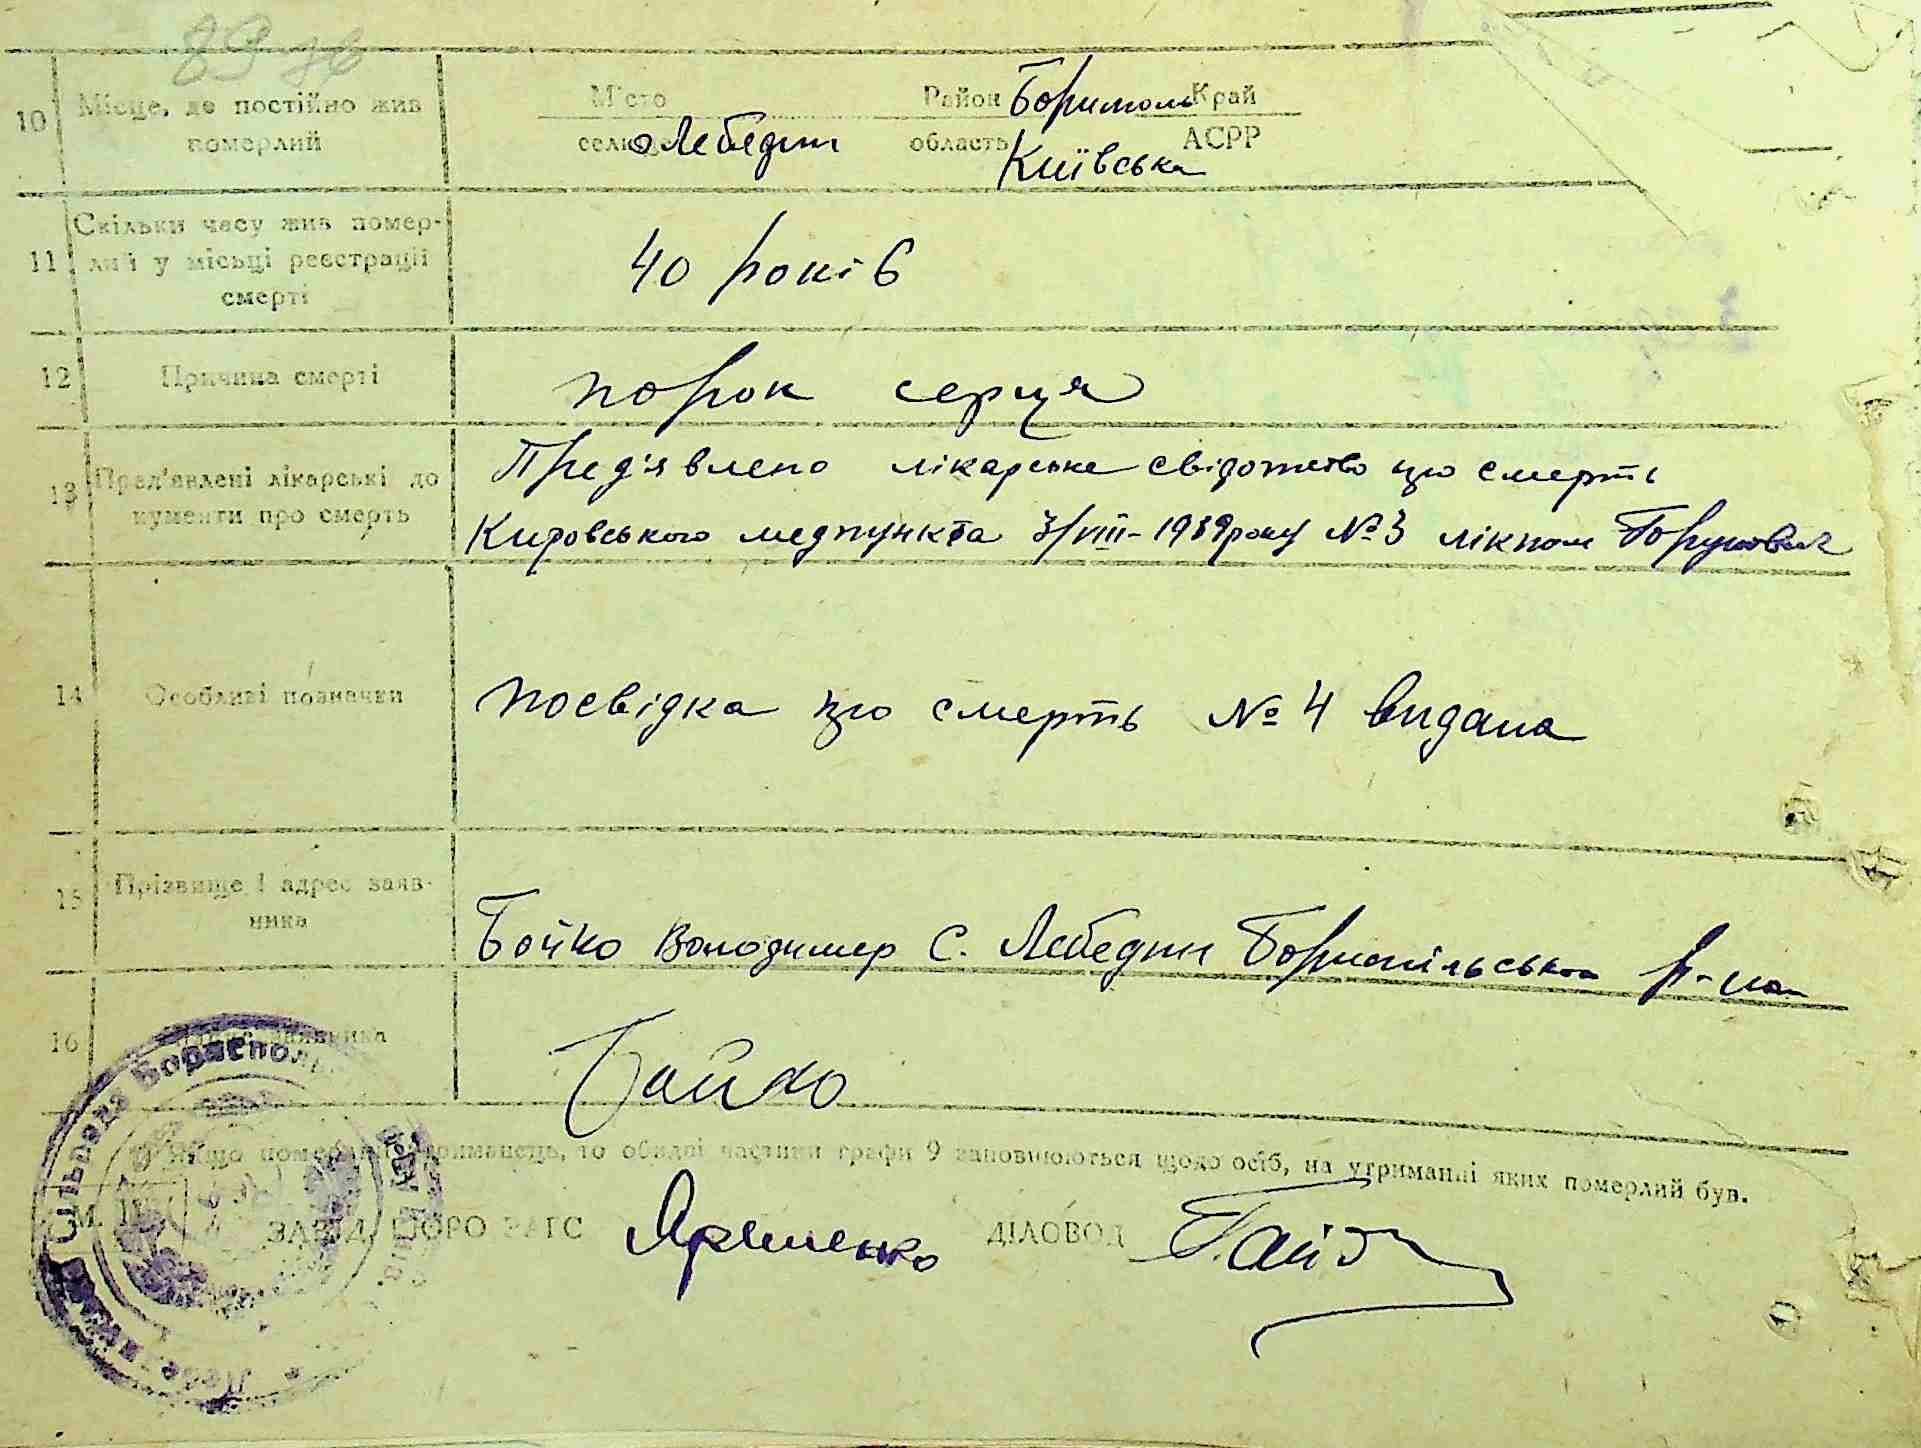 89 зв
10 Місце, де постійно жив
померлий
Місто
селище Лебедин
Район Бориспол Край
область Київська АСРР
11 Скільки часу жив помер-
лий у місьці реєстрації
смерті
40 років
12 Причина смерті
порок серця
13 Пред'явлені лікарські до
кументи про смерть
Пред'явлено лікарське свідотство про смерть
Кировського медпункта 3/VIII-1939 року № 3 лікпом
14 Особливі позначки
посвідка про смерть № 4 видана
15 Прізвище і адрес заяв-
ника
Бойко Володимер с. Лебедин Бориспільського р-на
16
Бойко
Якщо померлий утриманець, то обидві частини графи 9 заповнюються щодо осіб, на утриманні яких померлий був.
М. П.
ЗАВІД. БЮРО РАГС Яременко ДІЛОВОД
Сільрада Бориспол